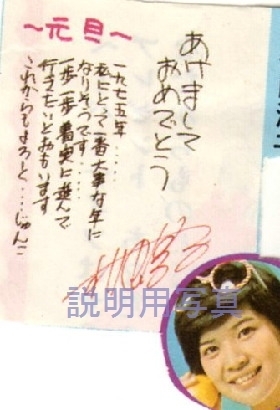 〜元旦〜
あけまして
おめでとう
一九七五年‥‥‥
私にとって一番大事な年に
なりそうです‥‥‥
一歩一歩着実に進んで
行きたいとおもいます
これからもまろしく‥‥じゅんこ
説明用写真